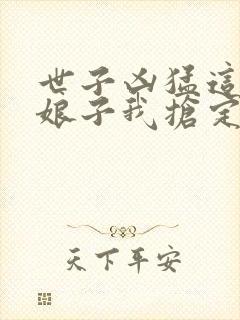 世子凶猛這
娘子我搶定
天下平安